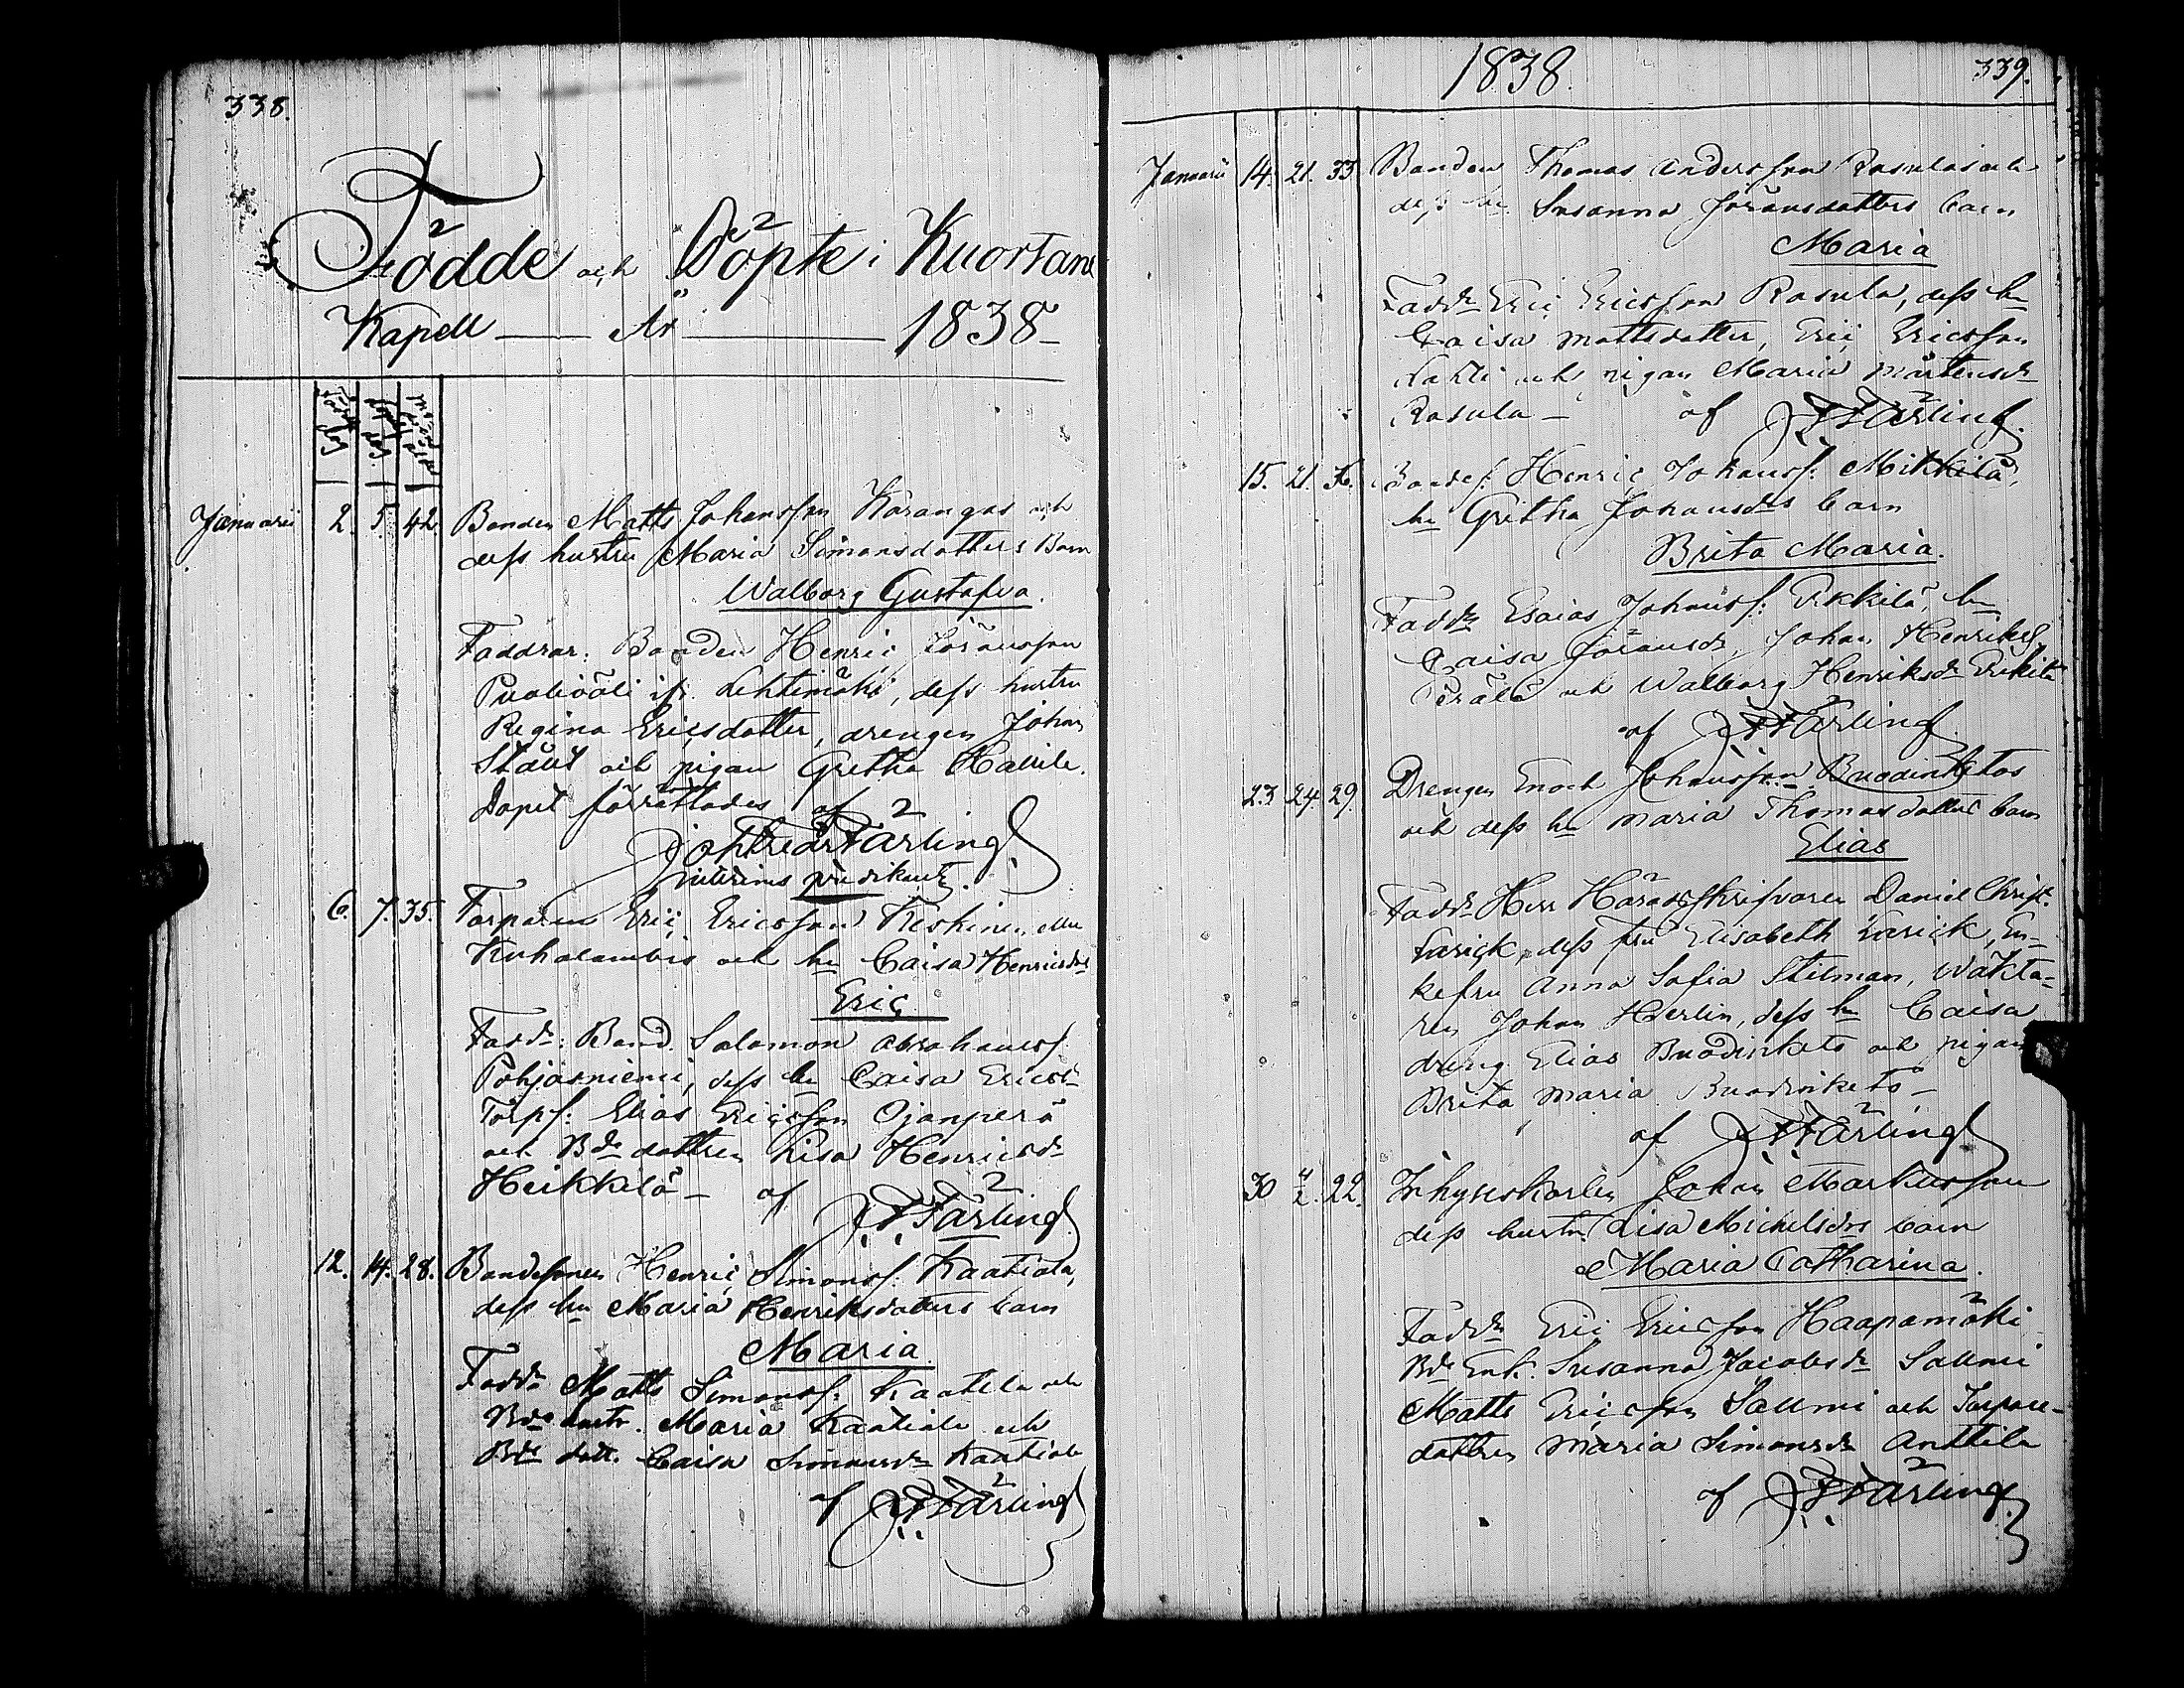 338.
Födde och Döpte i Kuortane
Kapell — År — 1838 —
Födelse dag
Döpelse dag
Modrens ålder
Januarii 2. 5. 42. Bonden Matts Johansson Karangas och
dess hustru Maria Simonsdotters Barn
Walborg Gustafva.
Faddrar: Bonden Henric Göransson
Puoliväli ifr. Lehtimäki, dess hustru
Regina Ericsdotter, drengen Johan
och pigan Gretha
Dopet förrättades af
Joh Fredr Färling
interims predikant.
6. 7. 35. Torparen Eric Ericsson Keskinen eller
Kuhalambi och hu Caisa Henricsdrs
Eric
Faddr: Bond. Salomon Abrahamss.
Pohjasniemi, dess hu Caisa Ericsdr
Torps: Elias Ericsson Ojanperä
och Bde dottren Lisa Henricsdr
Heikkilä — af JFFärling
12. 14. 28. Bondesonen Henric Simonss. Kaatiala,
dess hu Maria Henriksdotters barn
Maria
Faddr Matts Simonss: Kaatila och
Bde hustr. Maria Kaatiala och
Bde dott. Caisa Simonsdr Kaatiala
af JFFärling
1838.
339.
Januarii 14. 21. 33 Bonden Thomas Andersson Rasulas och
dess hu. Susanna Göransdotters barn
Maria
Faddr Eric Ericsson Rasula, dess hu
Caisa Mattsdotter, Eric Ericsson
och pigan Maria Mårtensdr
Rasula — af JFFärling.
15. 21. 36. Bondes. Henric Johanss. Mikkilä,
hu Gretha Johansdrs barn
Brita Maria.
Faddr Esaias Johanss: Erkkilä, hu
Caisa Göransdr, Johan Henrikss.
Perälä och Walborg Henriksdr Erkkilä
af JFFärling
23 24 29. Drengen Enoch Johansson Buodinketos
och dess hu Maria Thomasdotters barn
Elias
Faddr Herr Häradsskrifvaren Daniel Christ.
Farick, dess fru Elisabeth Farick, En-
kefru Anna Sofia Stilman, Wäkta-
ren Johan Herlin, dess hu Caisa
dreng. Elias Buodinketo och pigan
Brita Maria Buodinketo —
af JFFärling
30 4/2. 22. Inhyseskarlen Johan Markusson
dess hustru Lisa Michelsdrs barn
Maria Catharina.
Faddr Eric Ericsson Haapamäki
Bde Enk. Susanna Jacobsdr Salmi
Matts Ericsson Salmi och Torpare-
dottren Maria Simonsdr Anttila
af JFFärling.